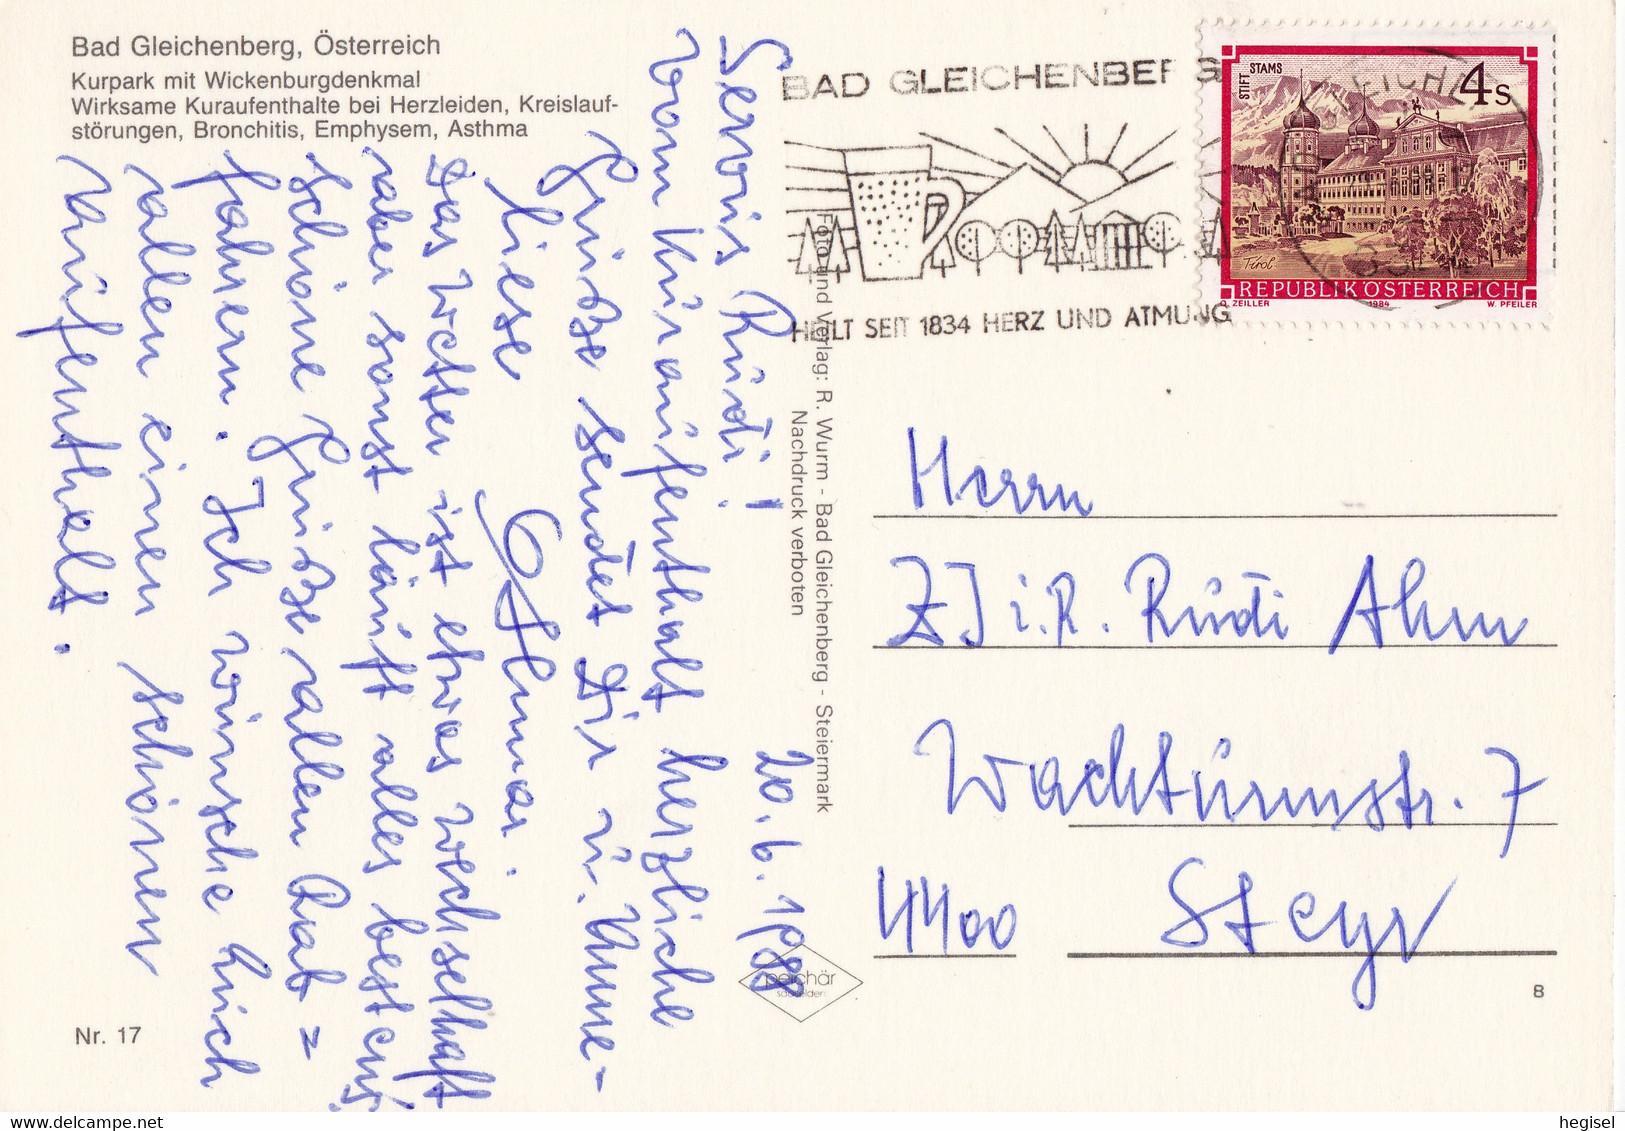 Bad Gleichenberg, Österreich
Kurpark mit Wickenburgdenkmal
Wirksame Kuraufenthalte bei Herzleiden, Kreislauf-
störungen, Bronchitis, Emphysem, Asthma
20.6.1988
Servus Rudi!
Vom Kuraufenthalt herzliche
Grüße sendet Dir u. Anne-
liese Othmar.
Das Wetter ist etwas wechselhaft
aber sonst läuft alles bestens
Schöne Grüße allen Rat=
fahrern. Ich wünsche Euch
allen einen schönen
Aufenthalt.
Nr. 17
Foto und Verlag: R. Wurm - Bad Gleichenberg - Steiermark
Nachdruck verboten
peichär
saalfelden
BAD GLEICHENBERG
HEILT SEIT 1834 HERZ UND ATMUNG
STIFT STAMS
4 S
Tirol
REPUBLIK ÖSTERREICH
O. ZEILLER 1984 W. PFEILER
Herrn
ZI i.R. Rudi Ahm
Wachturmstr. 7
4400 Steyr
B
hegisel